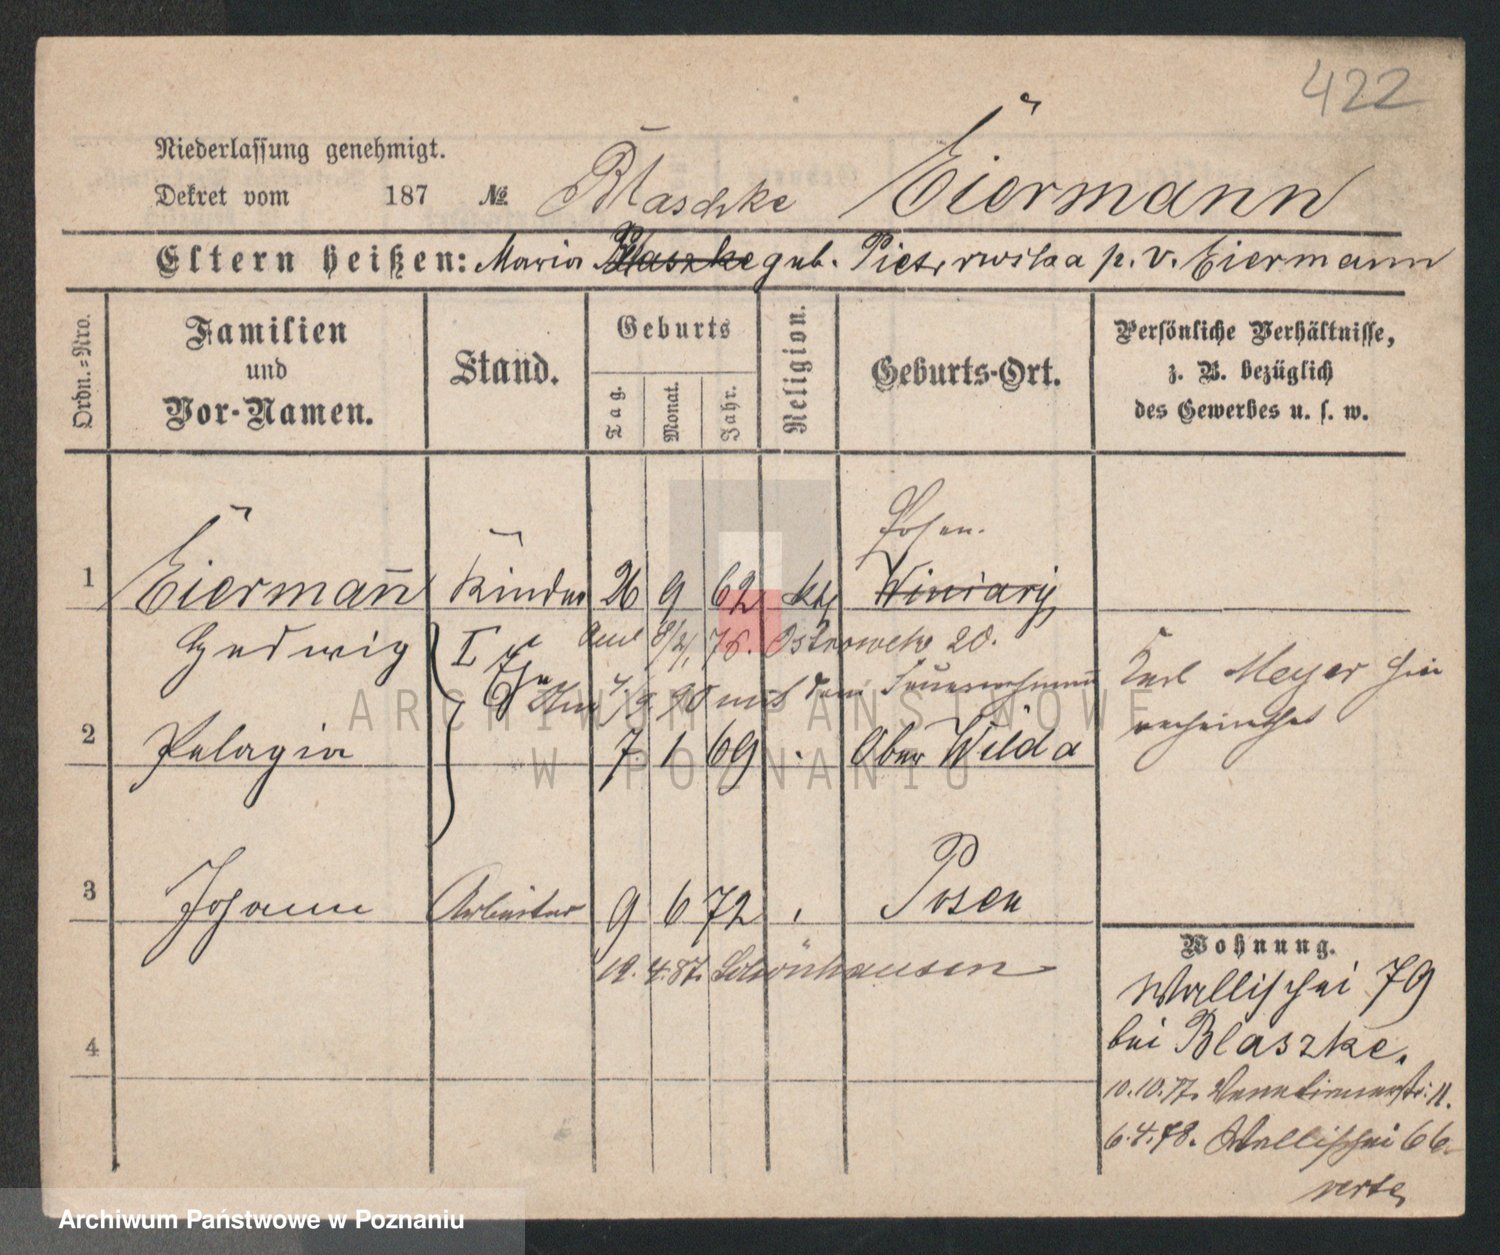 422
Niederlassung genehmigt.
Dekret vom 187 № Blaschke Eiermann
Eltern heißen: Maria Blaszke geb. p. v. Eiermann
Ordn.=Nro.
Familien
und
Vor-Namen.
Stand.
Geburts
Tag.
Monat.
Jahr.
Religion.
Geburts-Ort.
Persönliche Verhältnisse,
z. B. bezüglich
des Gewerbes u. s. w.
Posen.
1 Eiermann Kinder 26 9 62 kth Winiary
Hedwig I 76. Ostrowek 20.
Karl Meyer hier
9. 90 mit dem
verheirathet
2 Pelagia 7. 1 69 Ober Wilda
3 Johann Arbeiter 9 6 72 Posen
19. 4. 87. Schönhausen
Wohnung.
Wallischei 79
bei Blaszke.
4
10. 10. 77. 11.
6. 4. 78. Wallischei 66
verte
ARCHIWUM PAŃSTWOWE
W POZNANIU
Archiwum Państwowe w Poznaniu